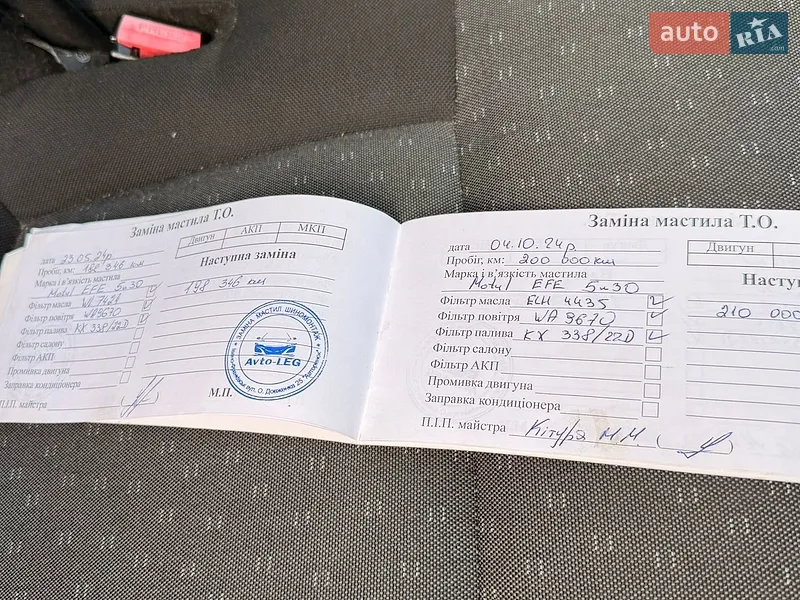 auto RIA .com
Заміна мастила Т.О.
Двигун АКП МКП
дата 23.05.24р
Пробіг, км: 182 346 км
Наступна заміна
Марка і в'язкість мастила
198 346 км
Motul EFE 5w30
Фільтр масла WL7428
Фільтр повітря WA9670
Фільтр палива KX 338/22D
Фільтр салону
Фільтр АКП
Промивка двигуна
Заправка кондиціонера
П.І.П. майстра
М.П.
ЗАМІНА МАСТИЛ ШИНОМОНТАЖ
Avto-LEG
вул. О. Довженка 25
Заміна мастила Т.О.
Двигун
дата 04.10.24р.
Пробіг, км: 200 000 км
Марка і в'язкість мастила
Motul EFE 5w30
Фільтр масла ECH 4435
Фільтр повітря WA 9670
Фільтр палива KX 338/22D
Фільтр салону
Фільтр АКП
Промивка двигуна
Заправка кондиціонера
П.І.П. майстра Кітура М.М
Насту
210 000